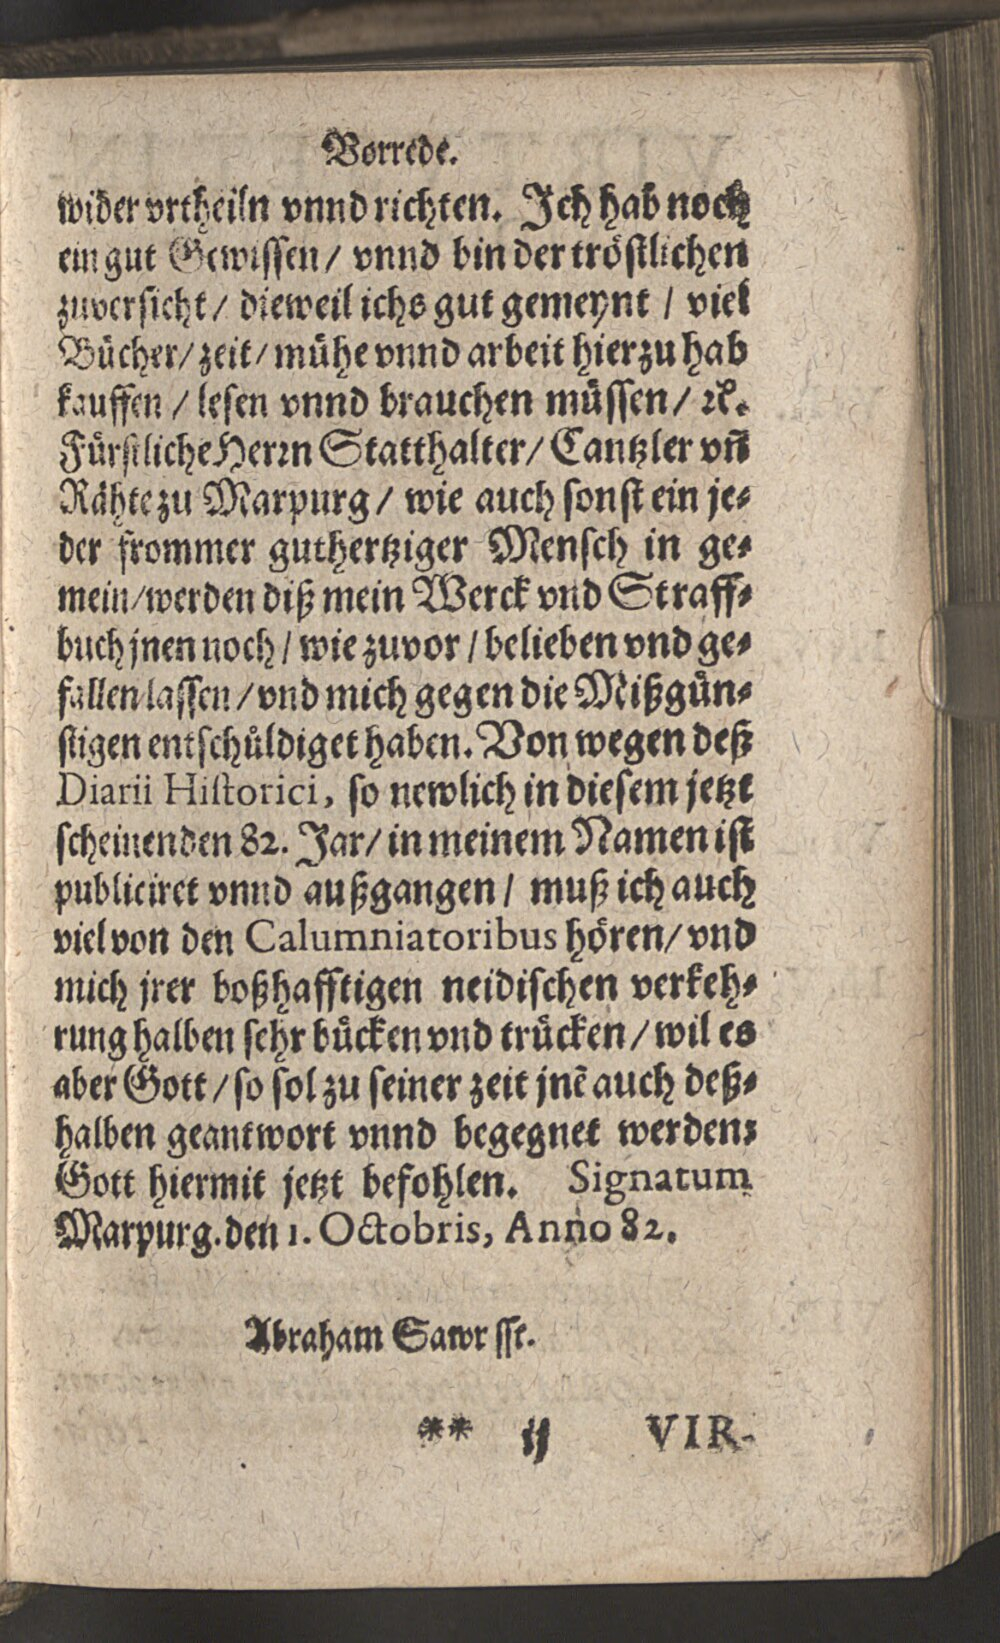 Vorrede.
wider vrtheiln vnnd richten. Ich hab noch
ein gut Gewissen / vnnd bin der tröstlichen
zuversicht / dieweil ichs gut gemeynt / viel
Bücher / zeit / mühe vnnd arbeit hierzu hab
kauffen / lesen vnnd brauchen müssen / ꝛc.
Fürstliche Herrn Statthalter / Cantzler vñ
Rähte zu Marpurg / wie auch sonst ein je⸗
der frommer guthertziger Mensch in ge⸗
mein / werden diß mein Werck vnd Straff⸗
buch jnen noch / wie zuvor / belieben vnd ge⸗
fallen lassen / vnd mich gegen die Mißgün⸗
stigen entschüldiget haben. Von wegen deß
Diarii Historici, so newlich in diesem jetzt
scheinenden 82. Jar / in meinem Namen ist
publiciret vnnd außgangen / muß ich auch
viel von den Calumniatoribus hören / vnd
mich jrer boßhafftigen neidischen verkeh⸗
rung halben sehr bücken vnd trücken / wil es
aber Gott / so sol zu seiner zeit jnẽ auch deß⸗
halben geantwort vnnd begegnet werden:
Gott hiermit jetzt befohlen. Signatum
Marpurg. den 1. Octobris, Anno 82.
Abraham Sawr sst.
** ij VIR-